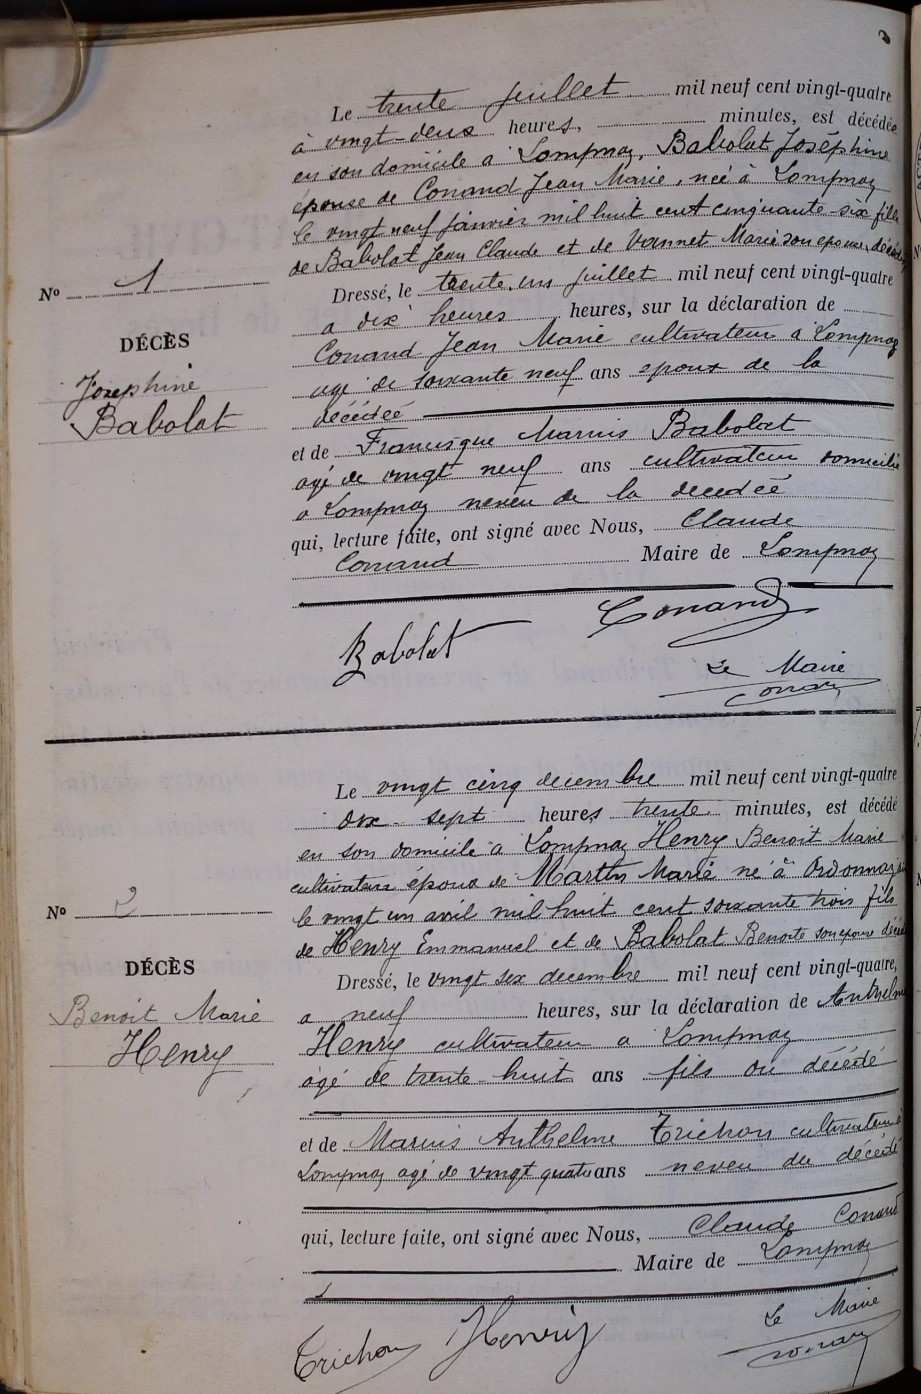 Le trente juillet mil neuf cent vingt-quatre
à vingt-deux heures, minutes, est décédée
en son domicile a Lompnaz, Babolat Joséphine
épouse de Conand Jean Marie, née à Lompnaz
le vingt neuf janvier mil huit cent cinquante-six fille
de Babolat Jean Claude et de Vannet Marie son epouse, décédés
Nº 1
Dressé, le trente un juillet mil neuf cent vingt-quatre
a dix heures heures, sur la déclaration de
DÉCÈS
Conand Jean Marie cultivateur a Lompnaz
Joséphine
agé de soixante neuf ans epoux de la
Babolat
décédéé
et de Francisque Marius Babolat
agé de vingt neuf ans cultivateur domicilié
a Lompnaz neveu de la decedéé
qui, lecture faite, ont signé avec Nous, Claude
Conand Maire de Lompnaz
Babolat Conand
Le Maire
Conand
Le vingt cinq decembre mil neuf cent vingt-quatre
dix-sept heures trente minutes, est décédé
en son domicile a Lompnaz Henry Benoit Marie
cultivateur époux de Martin Marie né à Ordonnaz
le vingt un avril mil huit cent soixante trois fils
Nº 2
de Henry Emmanuel et de Babolat Benoite son epouse décédés
DÉCÈS
Dressé, le vingt six decembre mil neuf cent vingt-quatre,
a neuf heures, sur la déclaration de Anthelme
Benoit Marie
Henry cultivateur a Lompnaz
Henry
agé de trente-huit ans fils du décédé
et de Marius Anthelme Trichon cultivateur à
Lompnaz agé de vingt quatre ans neveu du décédé
qui, lecture faite, ont signé avec Nous, Claude Conand
Maire de Lompnaz
Trichon Henry
Le Maire
Conand